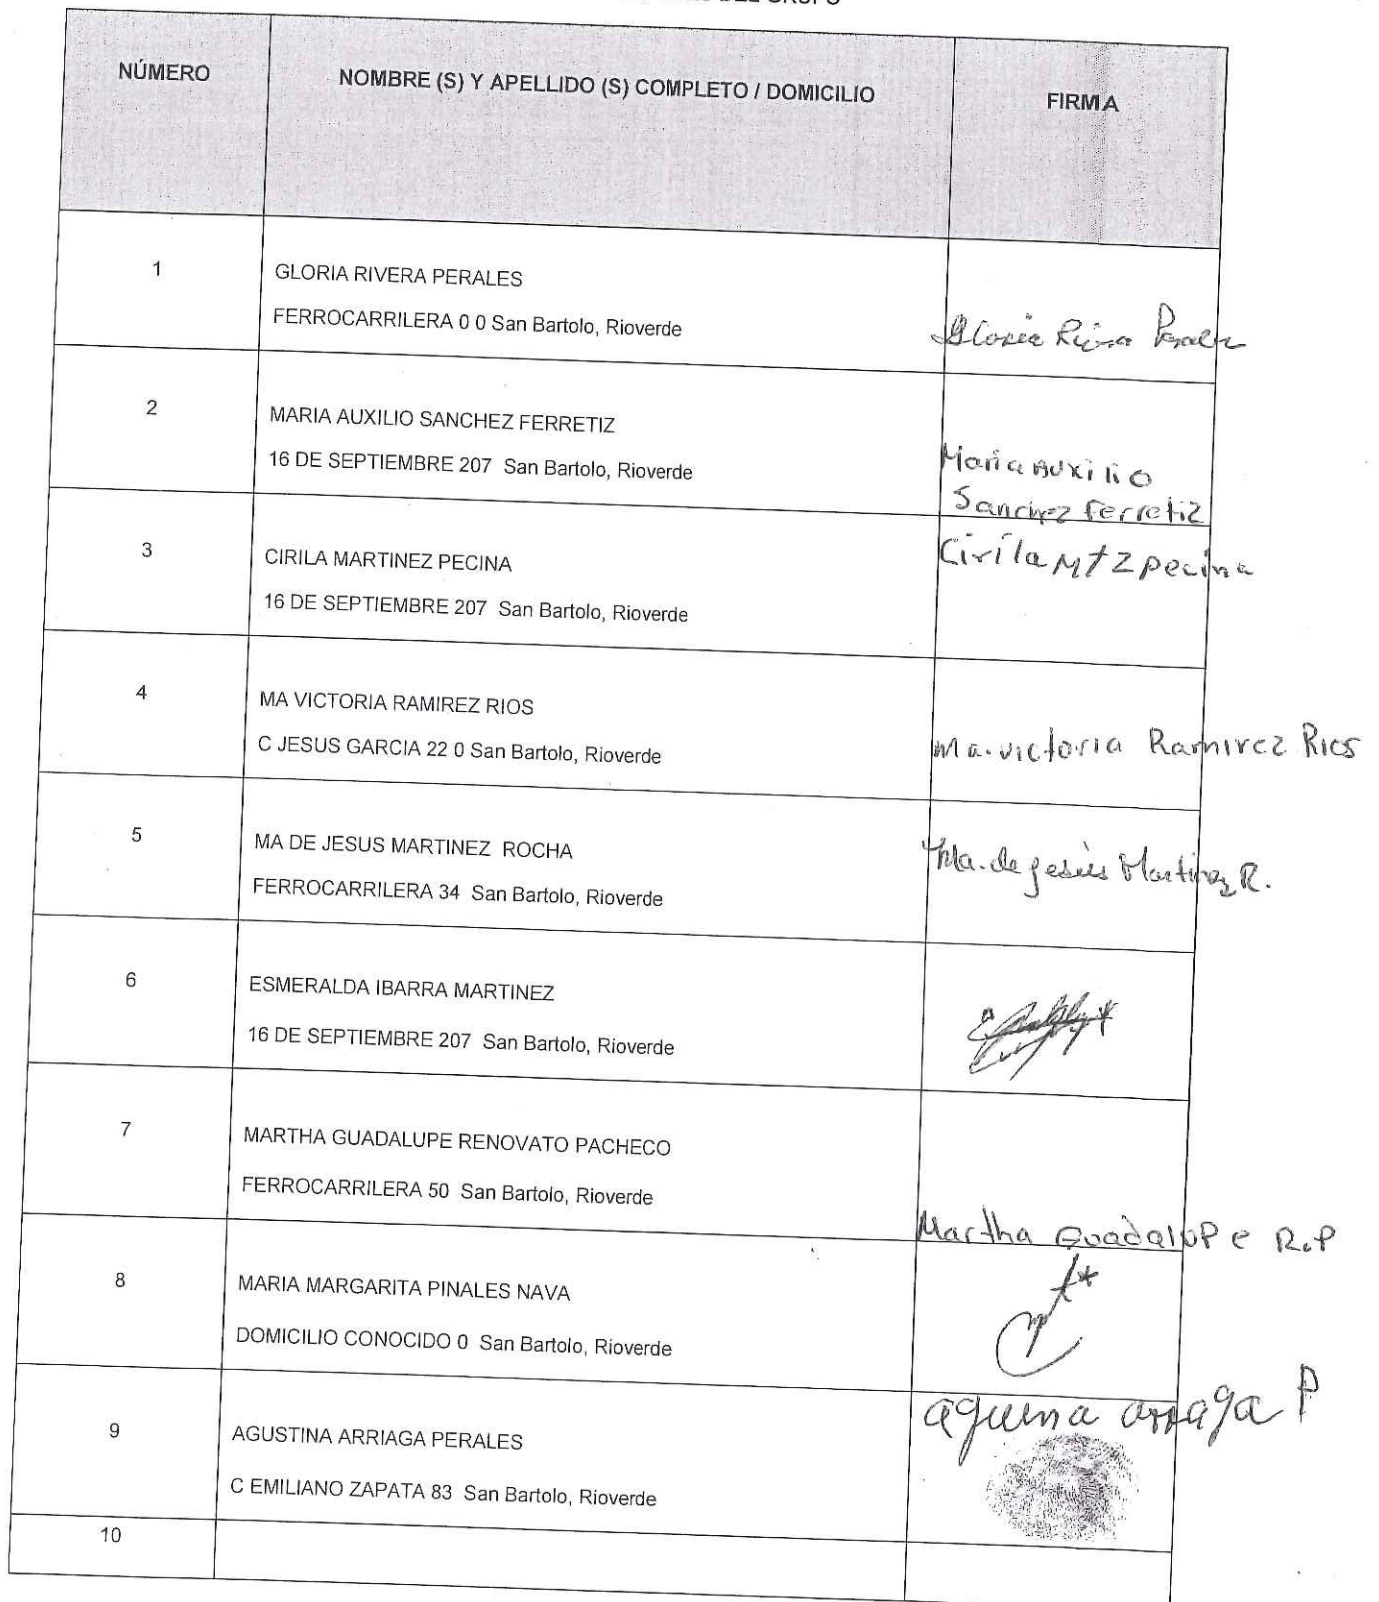 DEL GRUPO
NÚMERO
NOMBRE (S) Y APELLIDO (S) COMPLETO / DOMICILIO
FIRMA
1
GLORIA RIVERA PERALES
FERROCARRILERA 0 0 San Bartolo, Rioverde
2
MARIA AUXILIO SANCHEZ FERRETIZ
16 DE SEPTIEMBRE 207 San Bartolo, Rioverde
Maria Auxilio
Sanchez Ferretiz
3
CIRILA MARTINEZ PECINA
16 DE SEPTIEMBRE 207 San Bartolo, Rioverde
Cirila Mtz pecina
4
MA VICTORIA RAMIREZ RIOS
C JESUS GARCIA 22 0 San Bartolo, Rioverde
Ma. victoria Ramirez Rios
5
MA DE JESUS MARTINEZ ROCHA
FERROCARRILERA 34 San Bartolo, Rioverde
Ma. de jesús Martinez R.
6
ESMERALDA IBARRA MARTINEZ
16 DE SEPTIEMBRE 207 San Bartolo, Rioverde
7
MARTHA GUADALUPE RENOVATO PACHECO
FERROCARRILERA 50 San Bartolo, Rioverde
Martha Guadalupe R.P
8
MARIA MARGARITA PINALES NAVA
DOMICILIO CONOCIDO 0 San Bartolo, Rioverde
9
AGUSTINA ARRIAGA PERALES
C EMILIANO ZAPATA 83 San Bartolo, Rioverde
10